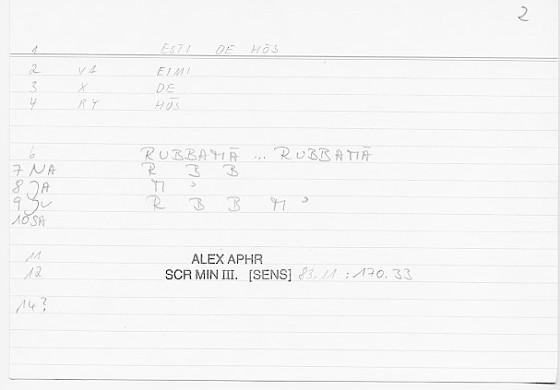 2
1 ESTI DE HŌS
2 V1 EIMI
3 X DE
4 RY HŌS
6 RUBBAMĀ ... RUBBAMĀ
7 NA R B B
8 JA M ʾ
9 JV R B B M ʾ
10 SA
11 ALEX APHR
12 SCR MIN III. [SENS] 83.11 : 170.33
14?